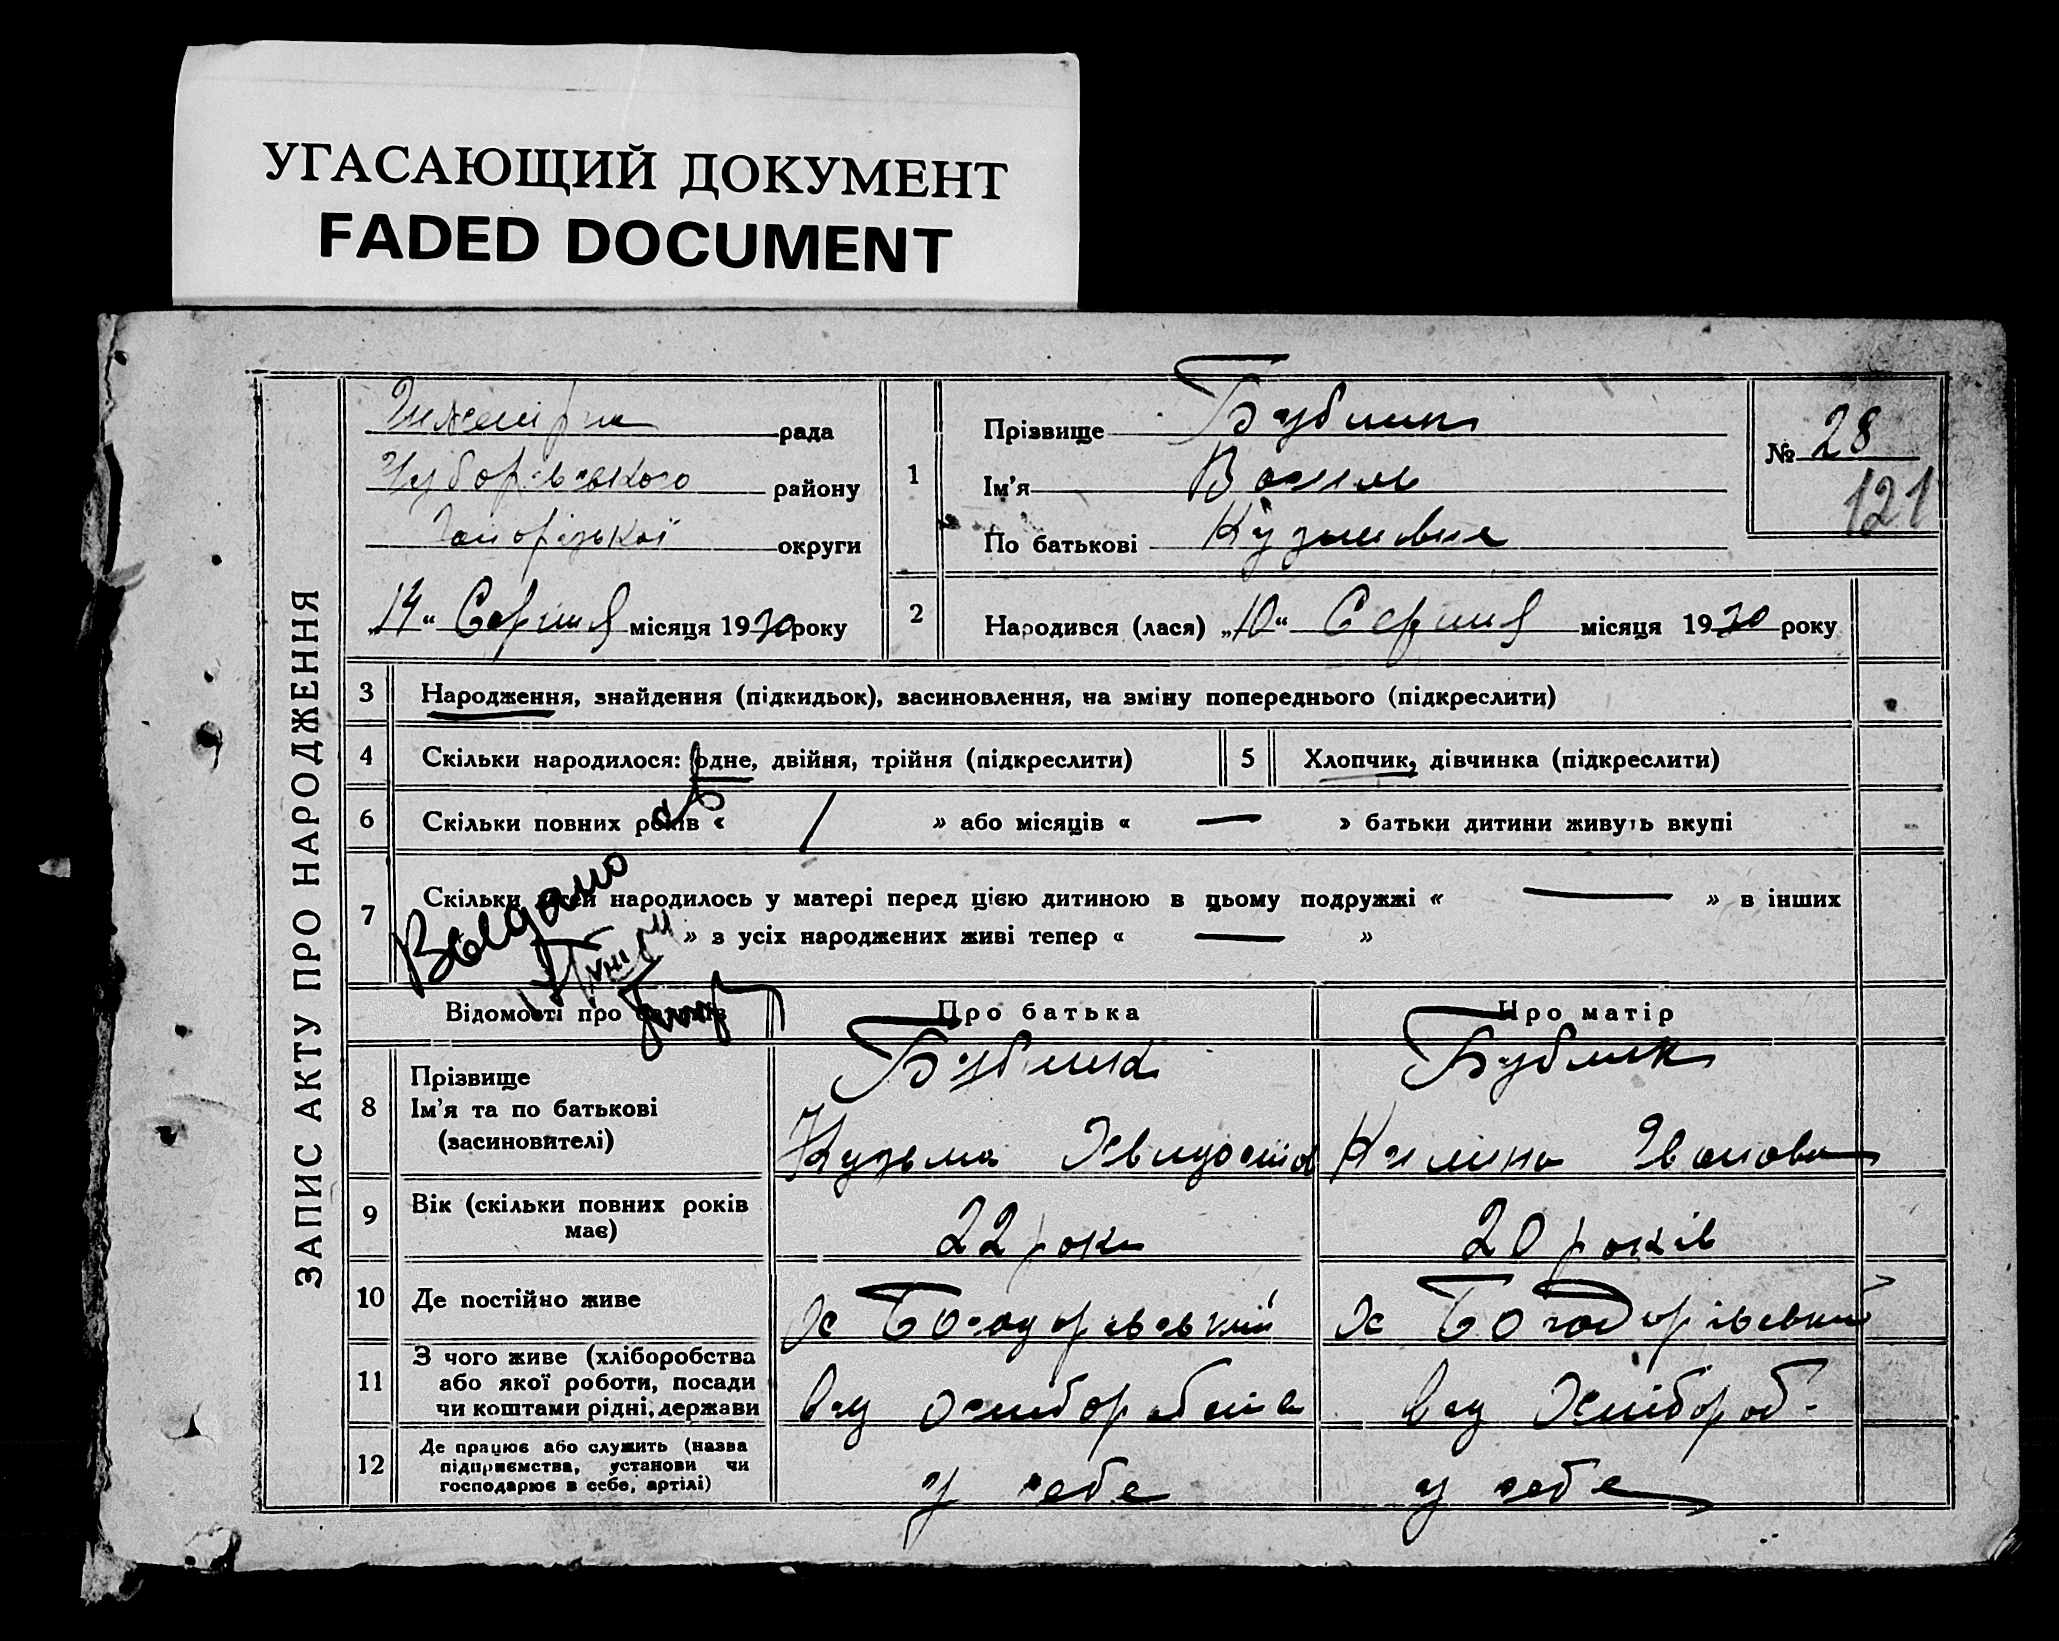 УГАСАЮЩИЙ ДОКУМЕНТ
FADED DOCUMENT
ЗАПИС АКТУ ПРО НАРОДЖЕННЯ
рада
району
Запорізької округи
„14“ Серпня місяця 1930 року
1
Прізвище Бублик
Ім'я Василь
По батькові Кузьмович
№ 28
121
2 Народився (лася) „10“ Серпня місяця 1930 року
3 Народження, знайдення (підкидьок), засиновлення, на зміну попереднього (підкреслити)
4 Скільки народилося: одне, двійня, трійня (підкреслити) 5 Хлопчик, дівчинка (підкреслити)
6 Скільки повних років « / » або місяців « — » батьки дитини живуть вкупі
7 Скільки дітей народилось у матері перед цією дитиною в цьому подружжі « — » в інших
» з усіх народжених живі тепер « — »
Видано
Відомості про батьків Про батька Про матір
8 Прізвище
Ім'я та по батькові
(засиновителі)
Бублик Бублик
Кузьма Килина Іванова
9 Вік (скільки повних років має) 22 роки 20 років
10 Де постійно живе х Богодарівський х Богодарівський
11 З чого живе (хліборобства
або якої роботи, посади
чи коштами рідні, держави
від хліборобства від Хлібороб.
12 Де працює або служить (назва
підприємства, установи чи
господарює в себе, артілі)
у себе у себе